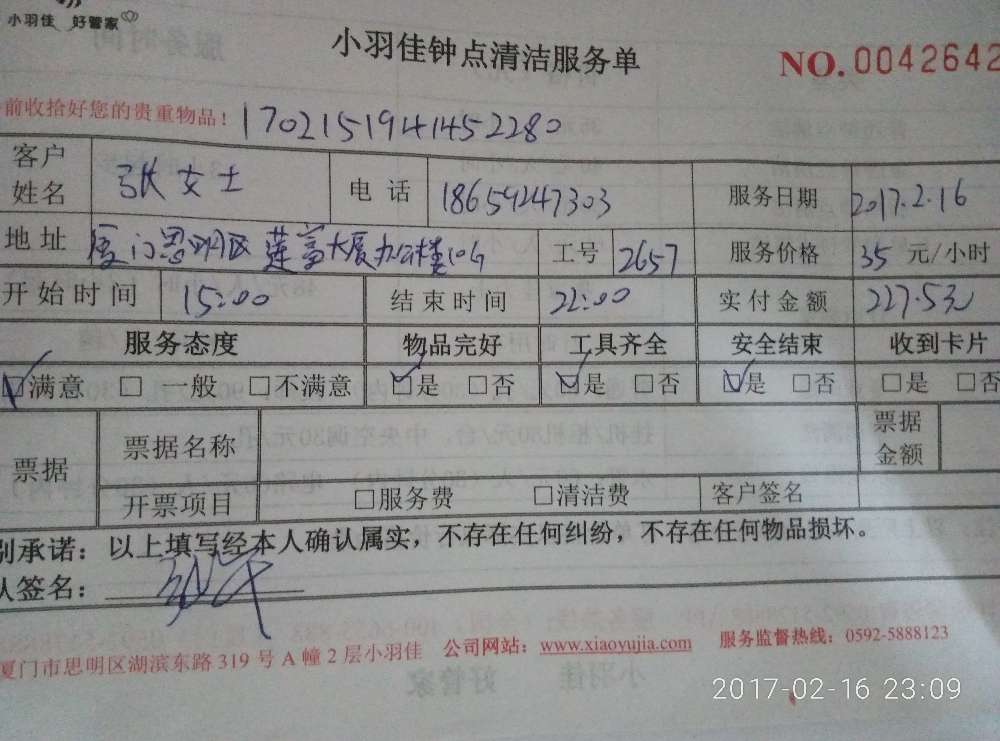 小羽佳 好管家
小羽佳钟点清洁服务单
NO.0042642
前收拾好您的贵重物品! 1702151941452280
客户姓名 张女士 电话 18659247303 服务日期 2017.2.16
地址 厦门思明区莲富大厦办公楼10G 工号 2657 服务价格 35 元/小时
开始时间 15:00 结束时间 22:00 实付金额 227.5元
服务态度 物品完好 工具齐全 安全结束 收到卡片
☑满意 □一般 □不满意 ☑是 □否 ☑是 □否 ☑是 □否 □是 □否
票据 票据名称 票据金额
开票项目 □服务费 □清洁费 客户签名
别承诺：以上填写经本人确认属实，不存在任何纠纷，不存在任何物品损坏。
人签名：
厦门市思明区湖滨东路 319 号 A 幢 2 层小羽佳 公司网站：www.xiaoyujia.com 服务监督热线：0592-5888123
2017-02-16 23:09